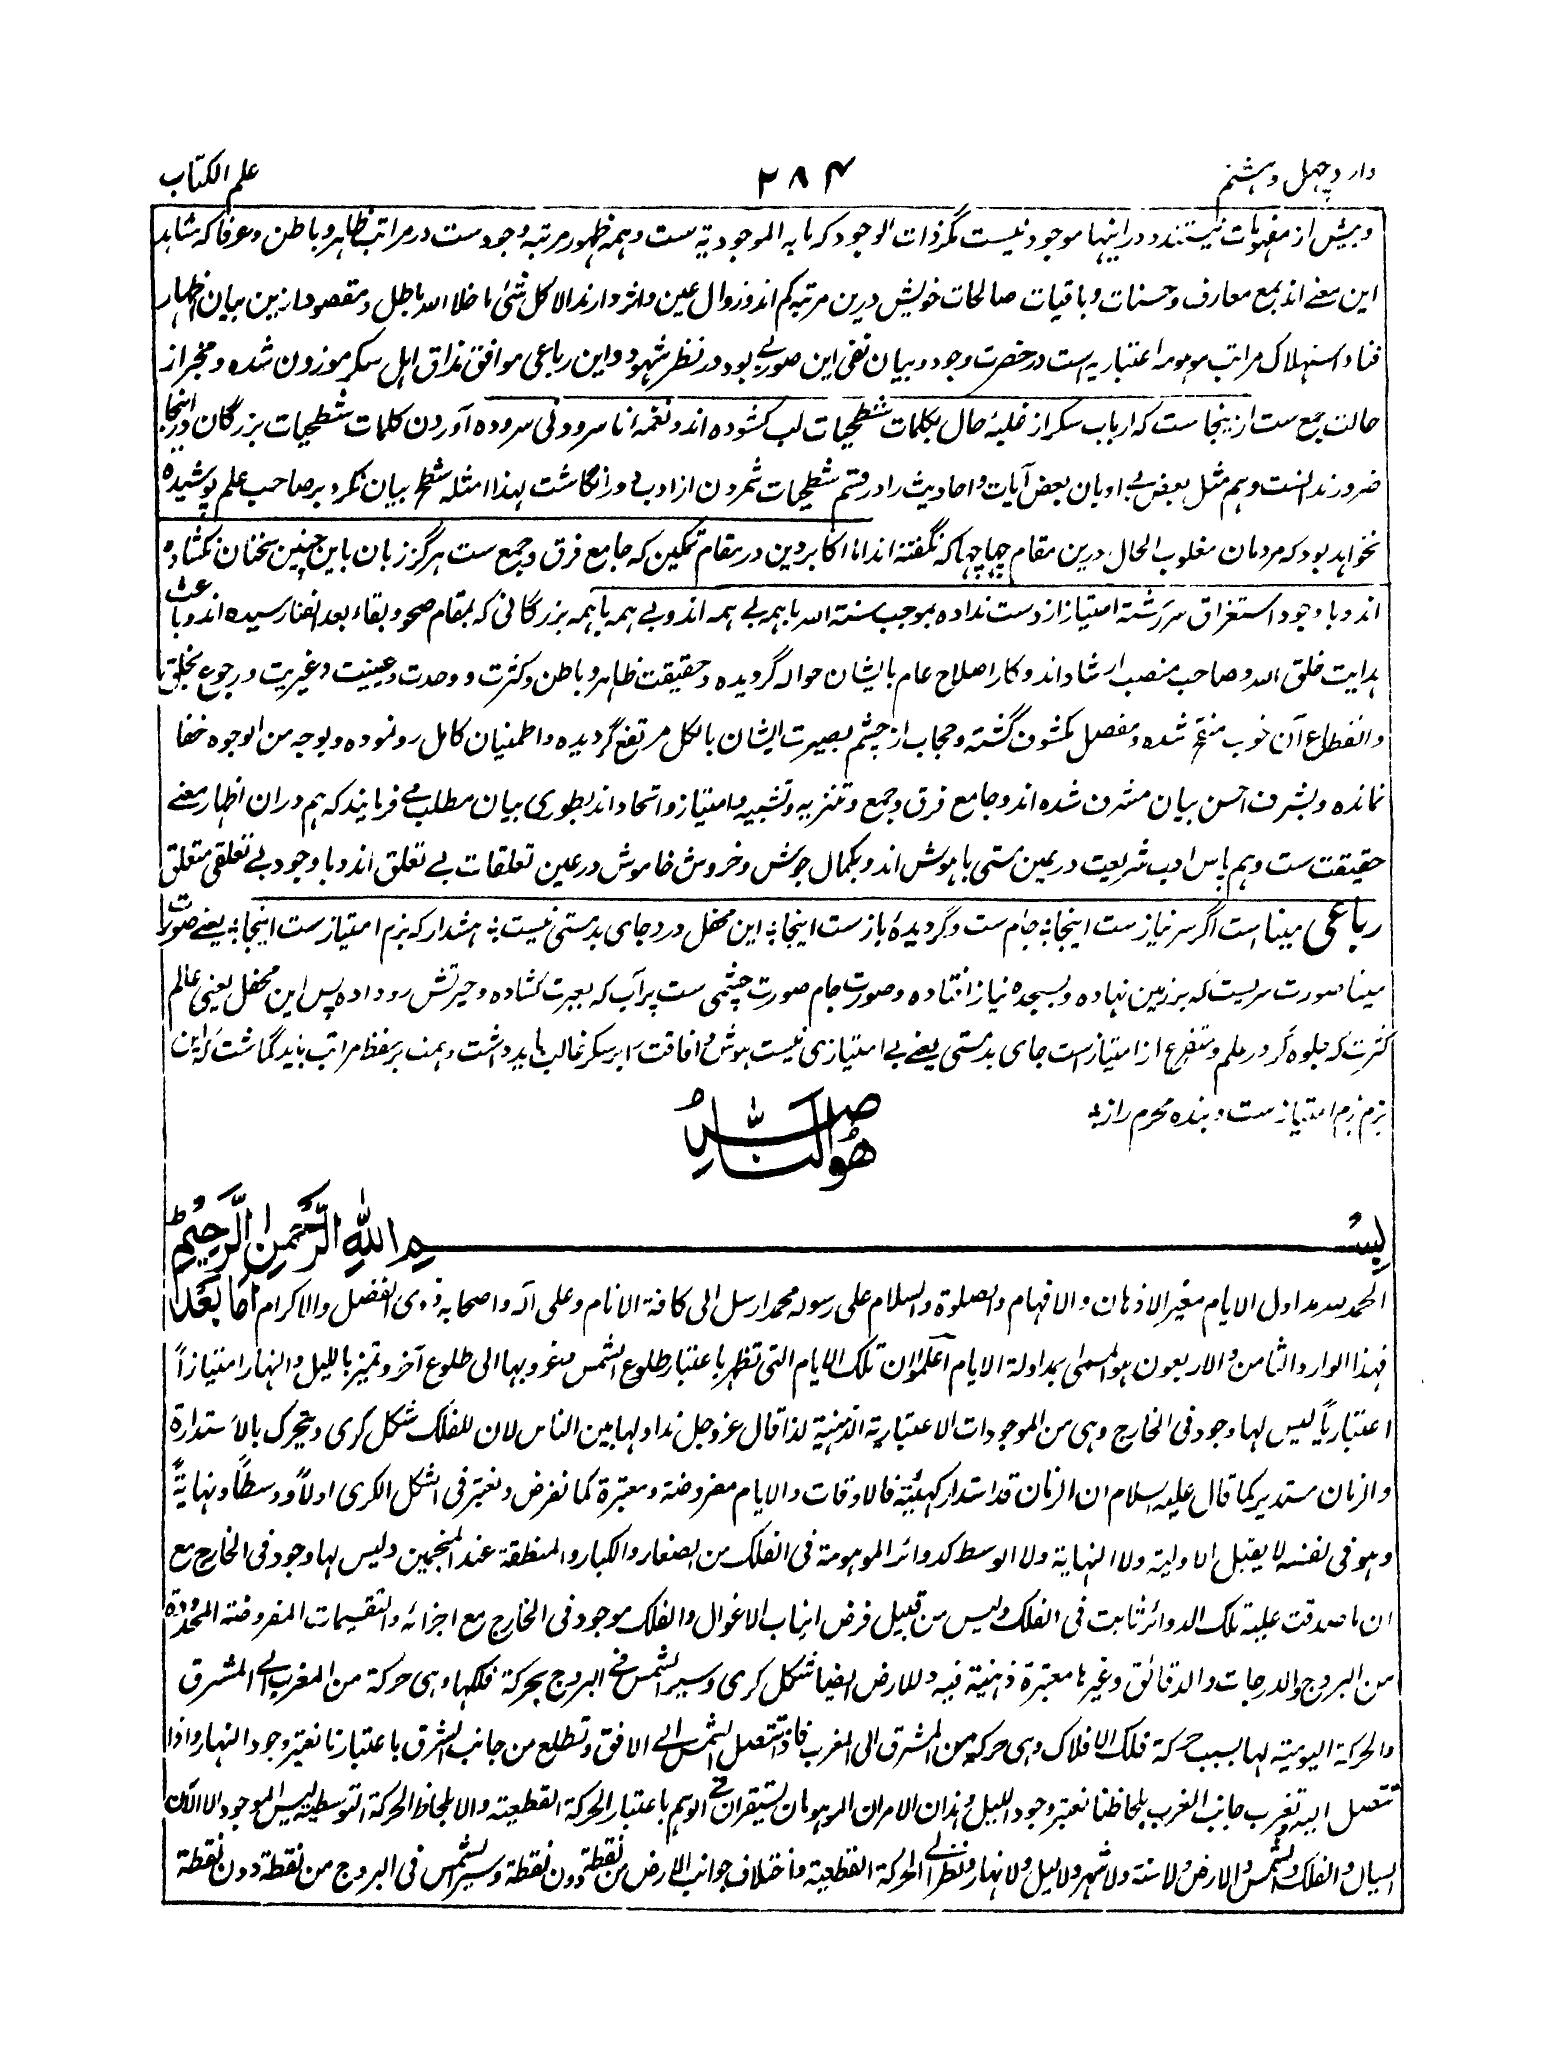 وارد چهل و هشتم
۲۸۴
علم الکتاب
و بیش از مفهومات نیستند و در اینها موجود نیست مگر ذات الوجود که ما به الموجودیة ست و همه ظهور مرتبه وجود ست در مراتب ظاهر و باطن و عرفا که شاهد
این معنے اند بجمع معارف و حسنات و باقیات صالحات خویش درین مرتبه گم اند و زوال عین و اثر دارند الا کل شئ ما خلا الله باطل و مقصود ازین بیان اظهار
فنا و استهلاک مراتب موهومه اعتباریه است در حضرت وجود و بیان نفی این صور بے بود در نظر شهود و این رباعی موافق مذاق اهل سکر موزون شده و مخبر از
حالت جمع ست ازینجاست که ارباب سکر از غلبهٔ حال بکلمات شطحیات لب کشوده اند و نغمه انا سرودنی سروده آوردن کلمات شطحیات بزرگان در اینجا
ضرور ندانست و هم مثل بعض بے ادبان بعض آیات و احادیث را در قسم شطحیات شمردن از ادب دور انگاشت لهذا امثله شطح بیان نکرد بر صاحب علم پوشیده
نخواهد بود که مردمان مغلوب الحال درین مقام چها چها که نگفته اند اما اکابر دین در مقام تمکین که جامع فرق و جمع ست هرگز زبان باین چنین سخنان نکشاده
اند و با وجود استغراق سررشته امتیاز از دست نداده بموجب سنة الله با همه بے همه اند و بے همه با همه بزرگانی که بمقام صحو و بقاء بعد الفنا رسیده اند و باعث
هدایت خلق الله و صاحب منصب ارشاد اند و کار اصلاح عام بایشان حواله گردیده و حقیقت ظاهر و باطن و کثرت و وحدت و عینیت و غیریت و رجوع بخلق با
و انقطاع آن خوب منقح شده و مفصل مکشوف گشته و حجاب از چشم بصیرت ایشان بالکل مرتفع گردیده و اطمنیان کامل رو نموده و بوجه من الوجوه خفا
نمانده و بشرف احسن بیان مشرف شده اند و جامع فرق و جمع و تنزیه و تشبیه و امتیاز و اتحاد اند بطوری بیان مطلب مے فرمایند که هم دران اظهار معنے
حقیقت ست و هم پاس ادب شریعت در عین مستی باهوش اند و بکمال جوش و خروش خاموش در عین تعلقات بے تعلق اند و با وجود بے تعلقی متعلق
رباعی میناست اگر سر نیاز ست اینجا ؞ جام ست وگر دیدهٔ باز ست اینجا ؞ این محفل درد جای بدمستی نیست ؞ هشدار که بزم امتیاز ست اینجا ؞ یعنے صورت
مینا صورت سریست که بر زمین نهاده و بسجده نیاز افتاده و صورت جام صورت چشمی ست پر آب که بعبرت کشاده و حیرتش رو داده پس این محفل یعنی عالم
کثرت که جلوه گر در علم و متفرع از امتیاز است جای بدمستی یعنے بے امتیازی نیست هوش و افاقت را بر سکر غالب باید داشت و همت بر حفظ مراتب باید گماشت که این
بزم بزم امتیاز ست و بنده محرم راز ؞
هو الناصر
بسم الله الرحمن الرحیم
الحمد لله مداول الایام مغیر الاذهان و الافهام و الصلوة و السلام علی رسوله محمد ارسل الی کافة الانام و علی آله و اصحابه ذوی الفضل و الاکرام اما بعد
فهذا الوارد الثامن و الاربعون هو المسمی بمداولة الایام اعلموا ان تلک الایام التی تظهر باعتبار طلوع الشمس و غروبها الی طلوع آخر و تمیز باللیل و النهار امتیازاً
اعتباریاً لیس لها وجود فی الخارج و هی من الموجودات الاعتباریة الذهنیة لذا قال عز و جل نداولها بین الناس لان للفلک شکل کری و یتحرک بالاستدارة
و الزمان مستدیر کما قال علیه السلام ان الزمان قد استدار کهیئته فالاوقات و الایام مفروضة و معتبرة کما نفرض و نعتبر فی الشکل الکری اولاً و وسطاً و نهایةً
و هو فی نفسه لا یقبل الاولیة و لا النهایة و لا الوسط کدوائر الموهومة فی الفلک من الصغار و الکبار و المنطقة عند المنجمین و لیس لها وجود فی الخارج مع
ان ما صدقت علیه تلک الدوائر ثابت فی الفلک و لیس من قبیل فرض انیاب الاغوال و الفلک موجود فی الخارج مع اجزائه و التقسیمات المفروضة المحدودة
من البروج و الدرجات و الدقائق و غیرها معتبرة ذهنیة فیه و للارض ایضا شکل کری و سیر الشمس فے البروج بحرکة فلکها و هی حرکة من المغرب الے المشرق
و الحرکة الیومیة لها بسبب حرکة فلک الافلاک و هی حرکة من المشرق الی المغرب فاذا تتصل الشمس الے الافق و تطلع من جانب الشرق باعتبارنا نعتبر وجود النهار و اذا
تتصل الیه تغرب جانب الغرب بلحاظنا نعتبر وجود اللیل و هذان الامران الموهومان یستقران فے الوهم باعتبار الحرکة القطعیة و الا بلحاظ الحرکة التوسطیة لیس الموجود الا الآن
السیال و الفلک و الشمس و الارض و لا سنة و لا شهر و لا لیل و لا نهار و نظرا الے الحرکة القطعیة و اختلاف جوانب الارض من نقطة دون نقطة و سیر الشمس فی البروج من نقطة دون نقطة